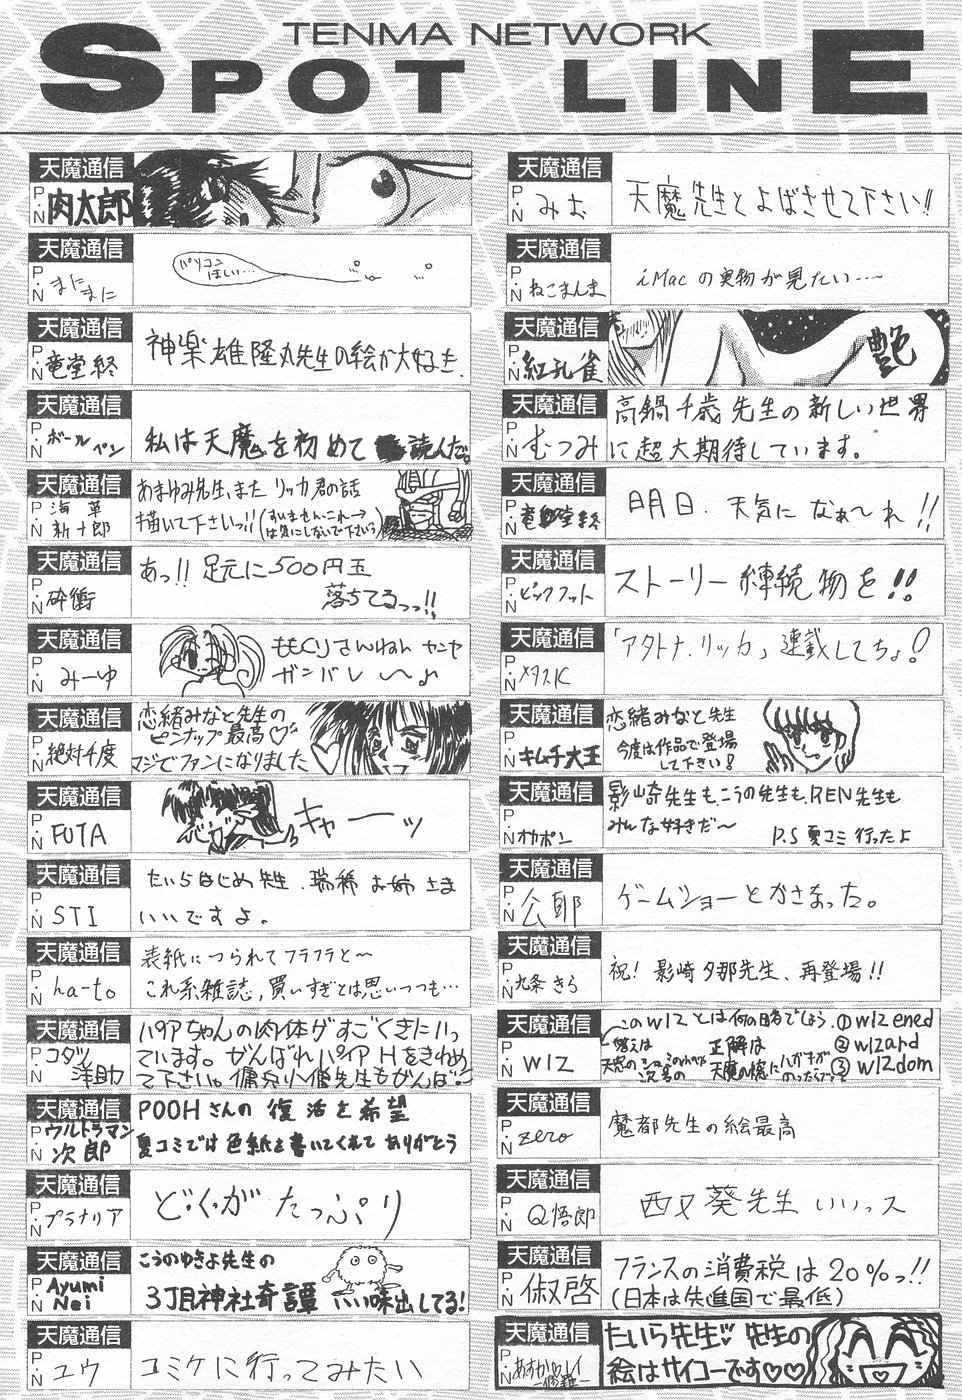 TENMA NETWORK
SPOT LINE
天魔通信
P.N 肉太郎
天魔通信
P.N まにまに
パソコン
ほしい…
天魔通信
P.N 竜堂終
神楽雄隆丸先生の絵が大好き.
天魔通信
P.N ボールペン
私は天魔を初めて読んだ。
天魔通信
P.N 海草新十郎
あまゆみ先生、また リッカ君の話
描いて下さいっ!!
(すいません、これ→
は気にしないで下さい)
天魔通信
P.N 砕衝
あっ!! 足元に500円玉
落ちてるっっ!!
天魔通信
P.N みーゆ
ももくりさんねん
ガンバレ 〜♪
天魔通信
P.N 絶対千度
恋緒みなと先生の
ピンナップ最高♡
マジでファンになりました
天魔通信
P.N FUTA
キャーッ
天魔通信
P.N STI
たいらはじめ先生.瑞稀お姉さま
いいですよ。
天魔通信
P.N ha-to
表紙につられてフラフラと〜
これ系雑誌,買いすぎとは思いつつも…
天魔通信
P.N コダツ洋助
パイアちゃんの肉体がすごくきにいっ
ています。がんばれパイア Hをきわめ
て下さい。傭兵小僧先生もがんば!
天魔通信
P.N ウルトラマン次郎
POOHさんの 復活を希望
夏コミでは色紙を書いてくれて ありがとう
天魔通信
P.N プラナリア
どくがたっぷり
天魔通信
P.N Ayumi Nei
こうのゆきよ先生の
3丁目神社奇譚 いい味出してる!
天魔通信
P.N ユウ
コミケに行ってみたい
天魔通信
P.N みお
天魔先生とよばさせて下さい!!
天魔通信
P.N ねこまんま
iMacの実物が見たい……
天魔通信
P.N 紅孔雀
艶
天魔通信
P.N むつみ
高鍋千歳先生の新しい世界
に超大期待しています。
天魔通信
P.N 竜堂終
明日、天気になぁ〜れ!!
天魔通信
P.N ビックフット
ストーリー連続物を!!
天魔通信
P.N メタスK
「アタトナ.リッカ」連載してちょ!
天魔通信
P.N キムチ大王
恋緒みなと先生
今度は作品で登場
して下さい!
天魔通信
P.N オカポン
影崎先生も、こうの先生も、REN先生も
みんな好きだ〜
P.S 夏コミ行ったよ
天魔通信
P.N 公耶
ゲームショーとかさなった。
天魔通信
P.N 九条きら
祝! 影崎夕那先生、再登場!!
天魔通信
P.N WIZ
このWIZとは何の略でしょう.
①wizened
②wizard
③wizdom
答えは
天魔の
次号の
正解は
天魔の
ハガキが
のったらです
天魔通信
P.N zero
魔都先生の絵最高
天魔通信
P.N Q悟郎
西又葵先生いいっス
天魔通信
P.N 俶啓
フランスの消費税は20%っ!!
(日本は先進国で最低)
天魔通信
P.N あすか
たいら先生♡ 先生の
絵はサイコーです♡♡